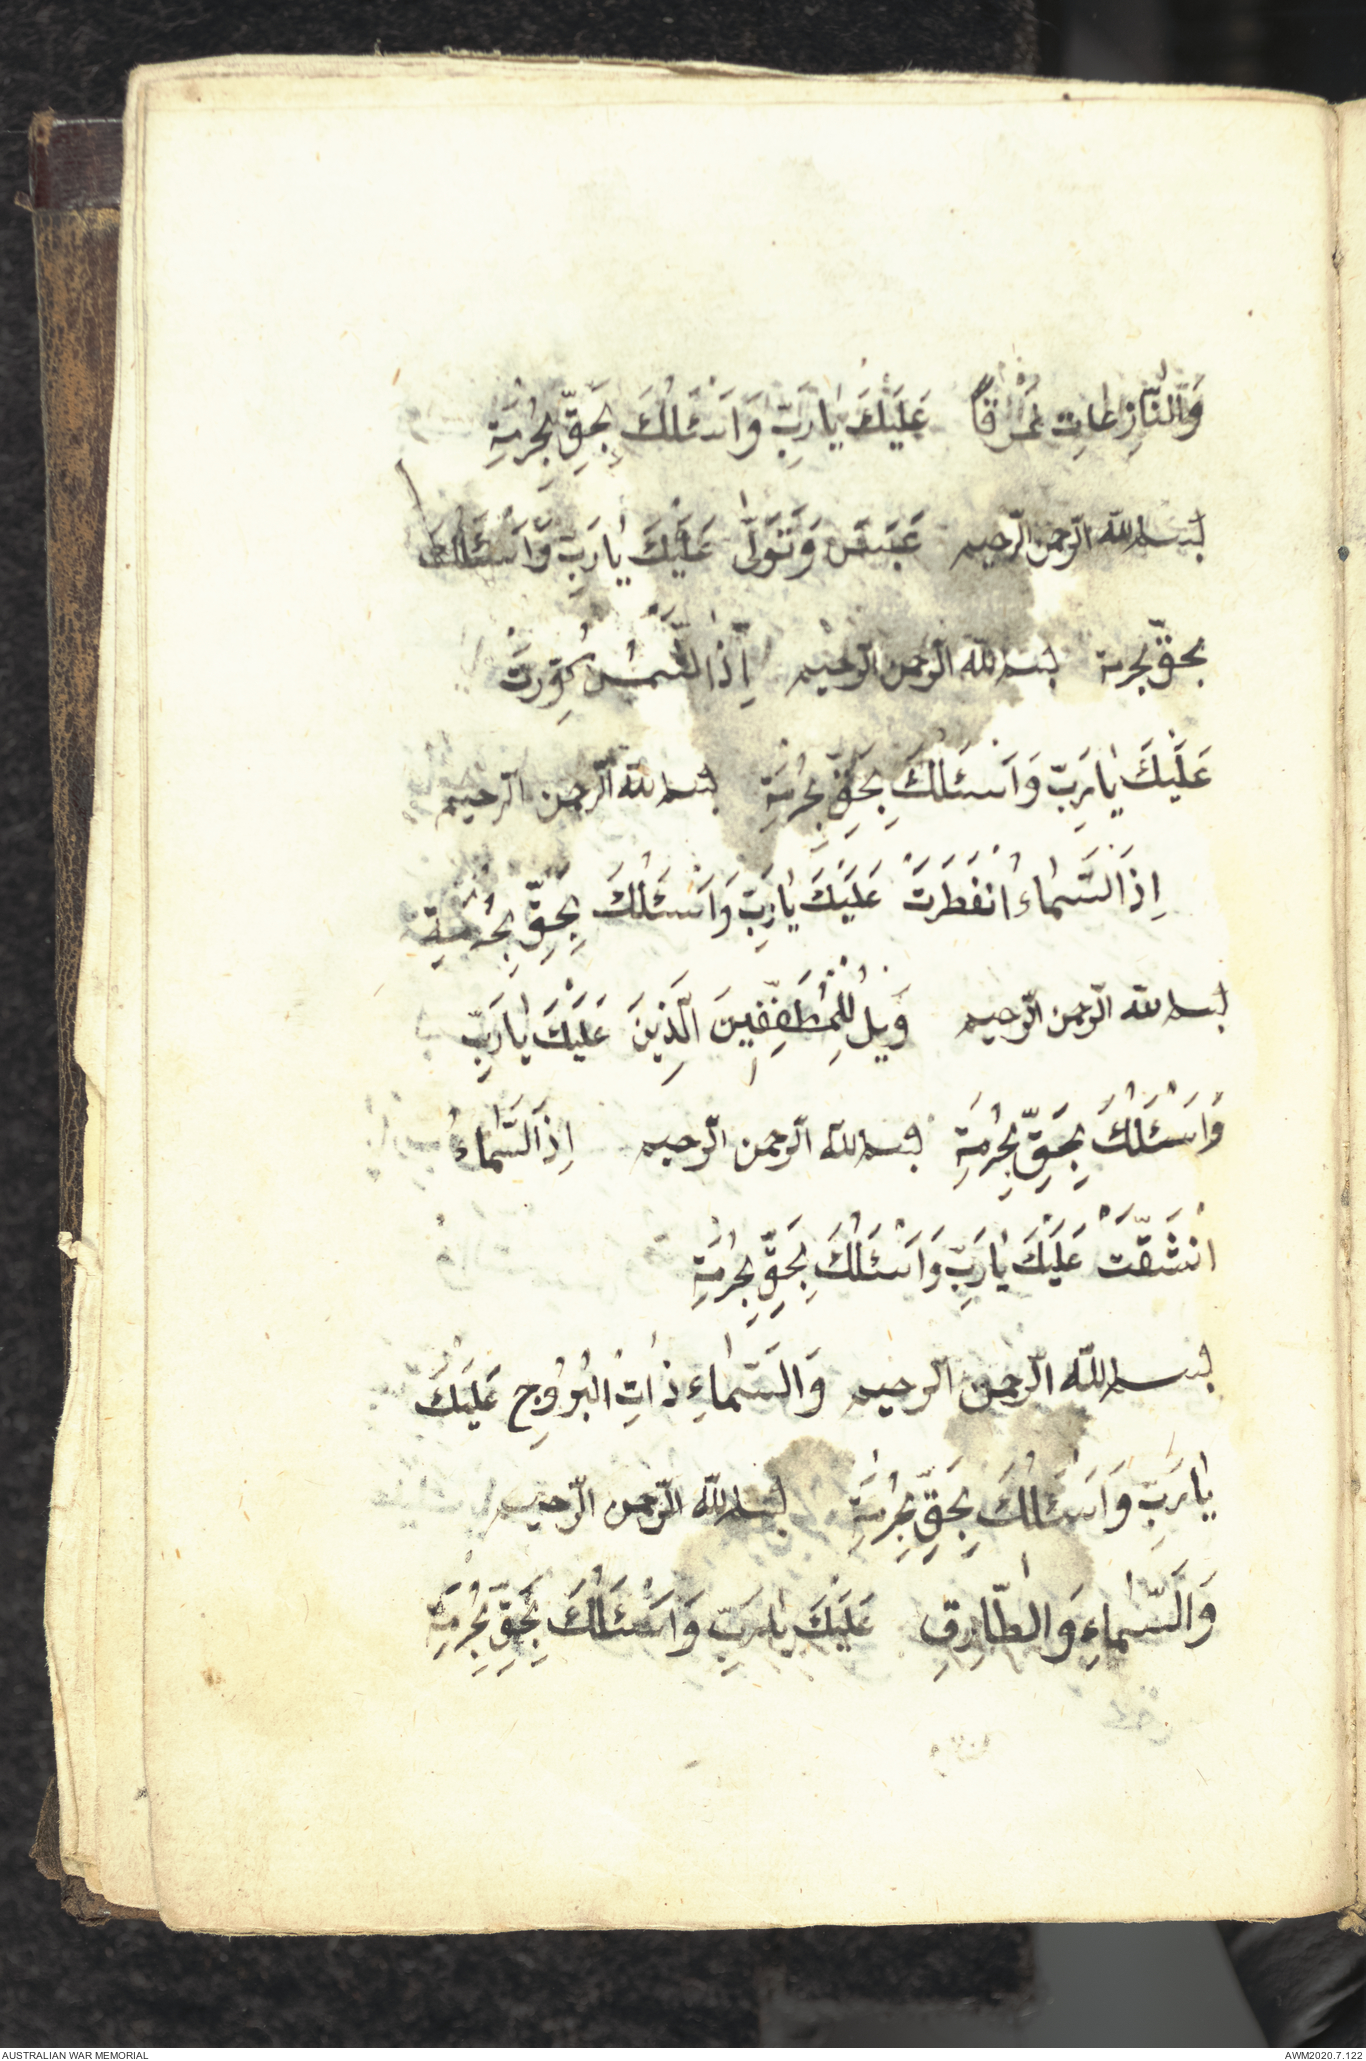 وَالنَّازِعَاتِ غَرْقًا عَلَيْكَ يَا رَبِّ وَاَسْئَلُكَ بِحَقِّ بِحُرْمَةِ
بسم الله الرحمن الرحيم عَبَسَ وَتَوَلّٰى عَلَيْكَ يَا رَبِّ وَاَسْئَلُكَ
بحقّ بحرمة بسم الله الرحمن الرحيم اِذَا الشَّمْسُ كُوِّرَتْ
عَلَيْكَ يَا رَبِّ وَاَسْئَلُكَ بِحَقِّ بِحُرْمَةِ بسم الله الرّحمن الرحيم
اِذَا السَّمَاءُ انْفَطَرَتْ عَلَيْكَ يَا رَبِّ وَاَسْئَلُكَ بِحَقِّ بِحُرْمَةِ
بسم الله الرّحمن الرّحيم وَيْلٌ لِلْمُطَفِّفِينَ الَّذِينَ عَلَيْكَ يَا رَبِّ
وَاَسْئَلُكَ بِحَقِّ بِحُرْمَةِ بسم الله الرّحمن الرّحيم اِذَا السَّمَاءُ
انْشَقَّتْ عَلَيْكَ يَا رَبِّ وَاَسْئَلُكَ بِحَقِّ بِحُرْمَةِ
بسم اللّه الرّحمن الرحيم وَالسَّمَاءِ ذَاتِ الْبُرُوجِ عَلَيْكَ
يَا رَبِّ وَاَسْئَلُكَ بِحَقِّ بِحُرْمَةِ بسم اللّه الرّحمن الرّحيم
وَالسَّمَاءِ وَالطَّارِقِ عَلَيْكَ يَا رَبِّ وَاَسْئَلُكَ بِحَقِّ بِحُرْمَةِ
AUSTRALIAN WAR MEMORIAL
AWM2020.7.122